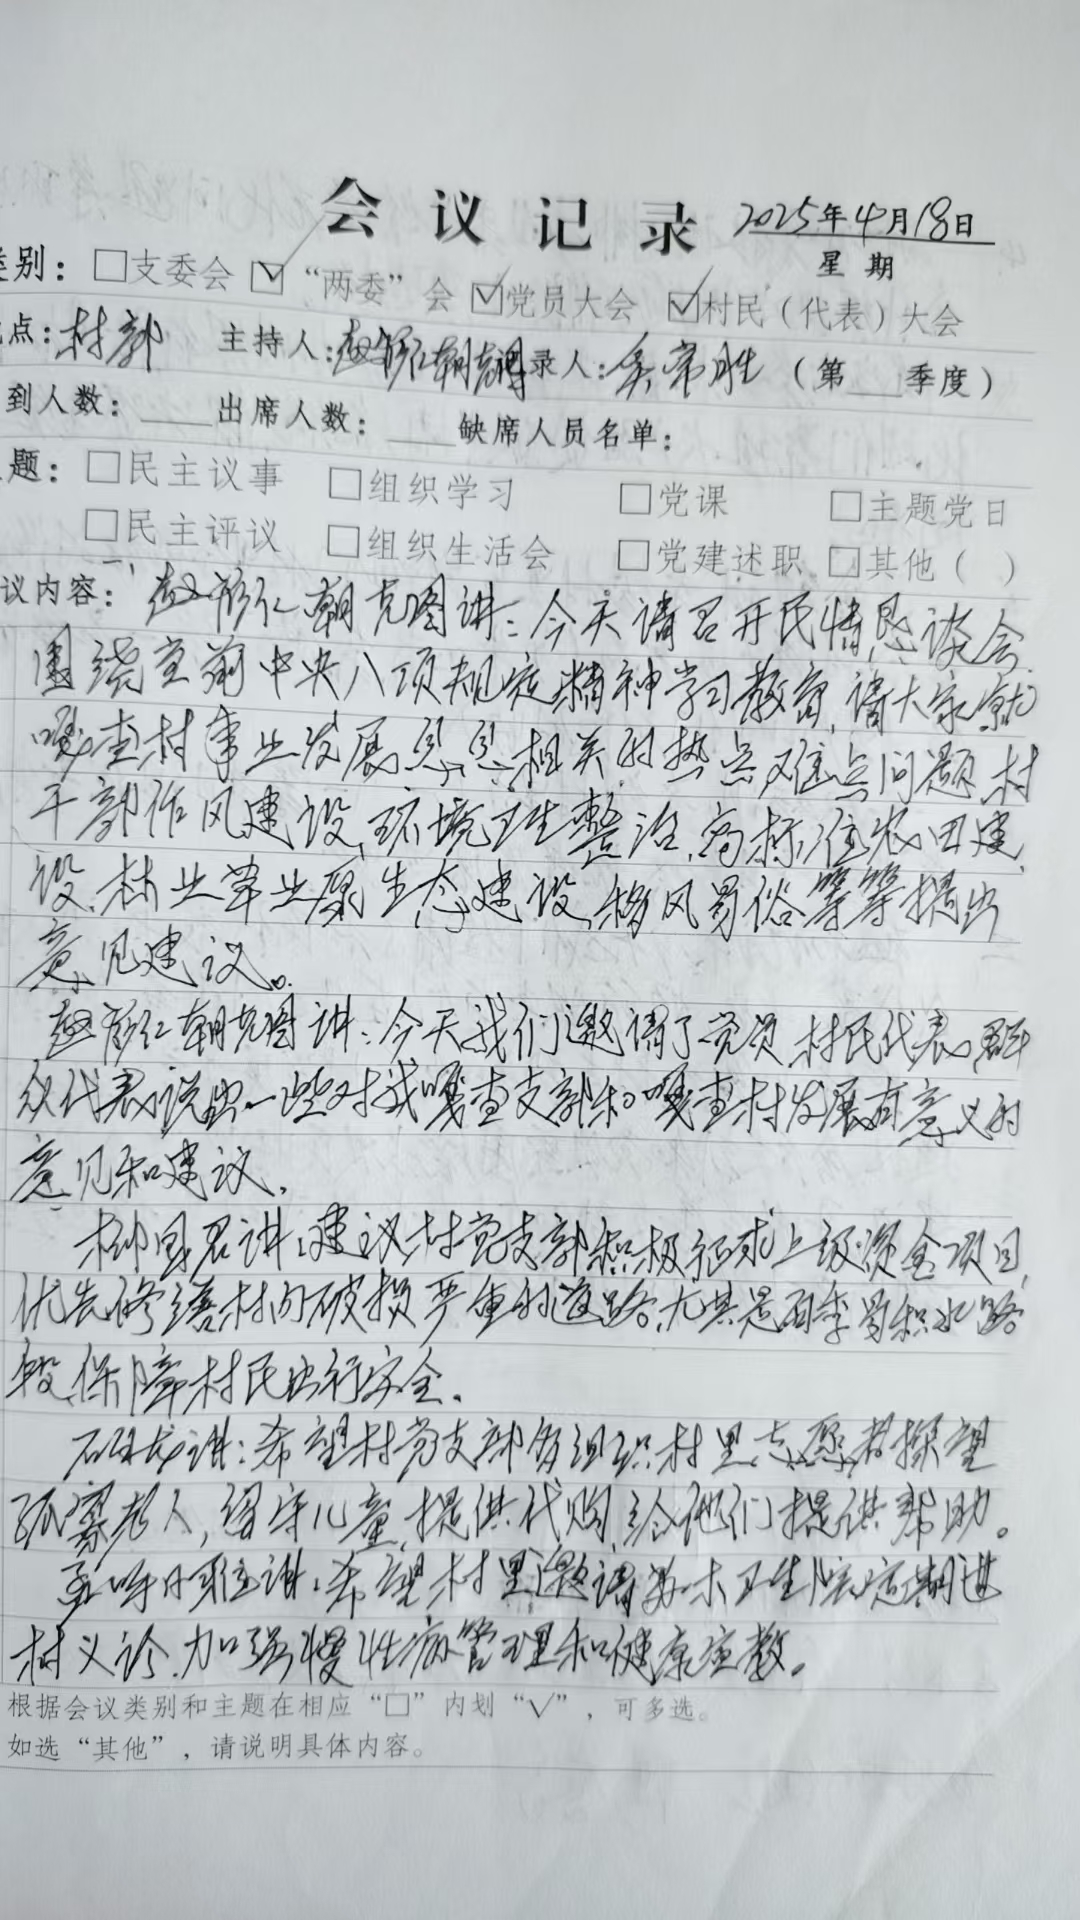 会议记录 2025年4月18日
星期
类别：□支委会 ☑“两委”会 ☑党员大会 ☑村民（代表）大会
点：村部 主持人：朝克图 录人：吴常胜（第 季度）
到人数： 出席人数： 缺席人员名单：
题：□民主议事 □组织学习 □党课 □主题党日
□民主评议 □组织生活会 □党建述职 □其他（ ）
议内容：一、朝克图讲：今天请召开民情恳谈会，
围绕贯彻中央八项规定精神学习教育，请大家就
嘎查村事业发展息息相关的热点难点问题，村
干部作风建设、环境卫生整治、高标准农田建
设、林业草业生态建设、移风易俗等等提出
意见建议。
朝克图讲：今天我们邀请了党员、村民代表、群
众代表说出一些对我嘎查支部和嘎查村发展有意义的
意见和建议。
国君讲：建议村党支部积极征求上级资金项目，
优先修缮村内破损严重的道路，尤其是雨季易积水路
段，保障村民出行安全。
讲：希望村党支部多组织村里志愿者探望
孤寡老人，留守儿童，提供代购，给他们提供帮助。
讲：希望村里邀请苏木卫生院定期进
村义诊，加强慢性病管理和健康宣教。
根据会议类别和主题在相应“□”内划“√”，可多选。
如选“其他”，请说明具体内容。